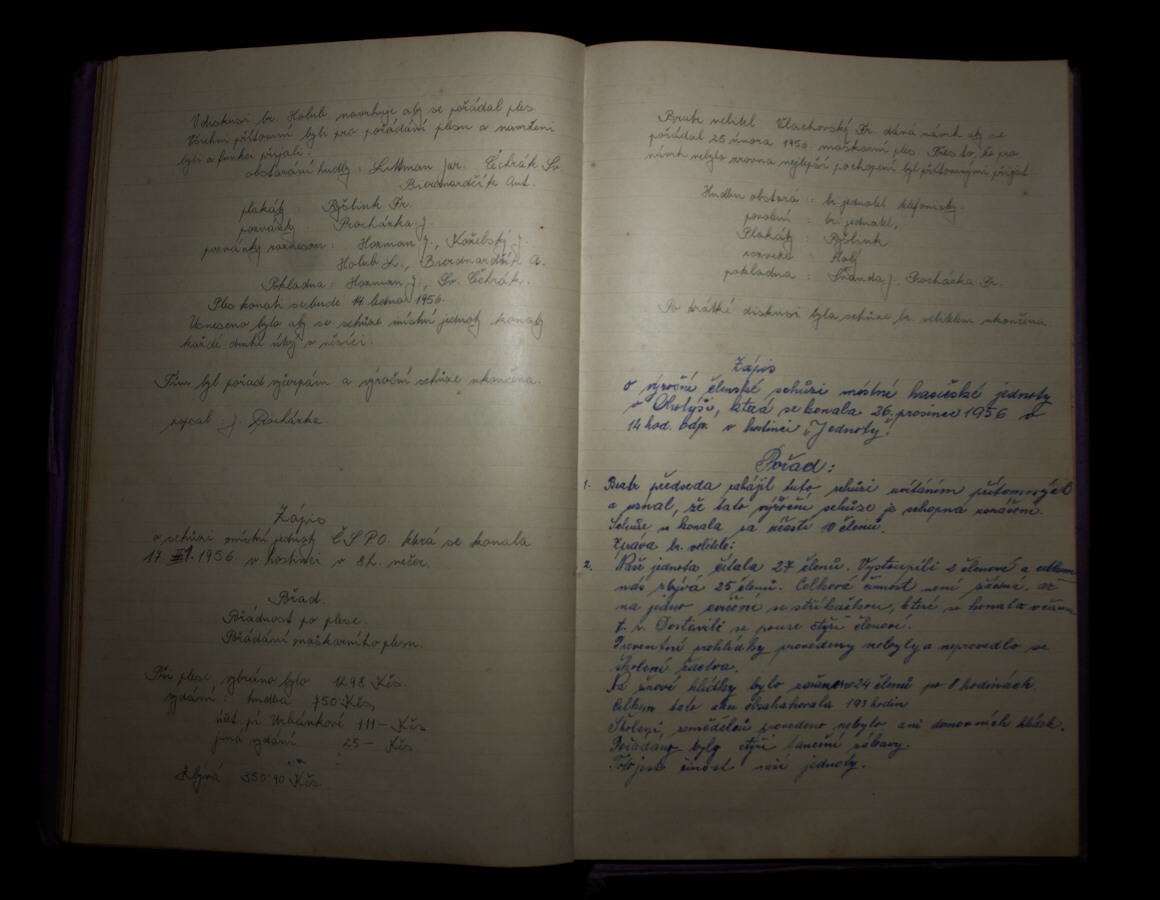 V diskusi br. Holub navrhuje aby se pořádal ples.
Všichni přítomní byli pro pořádání plesu a navrženi
byli a funkce přijali:
obstarání hudby: Littman jar. Čehrák Sv.
Bierdnardčík Ant.
plakáty Pöslink Fr.
pozvánky: Procházka J.
pozvánky roznesou: Hozman J., Kořelský J.
Holub L., Bierdnardčík A.
Pokladna: Hozman J., Sv. Čehrák.
Ples konati se bude 14 ledna 1956.
Usneseno bylo aby se schůze místní jednoty konaly
každé druhé úterý v měsíci.
Tím byl pořad vyčerpán a výroční schůze ukončena.
zapsal: J. Procházka.
Zápis
o schůzi místní jednoty Č.S.P.O. která se konala
17. 1. 1956 v hostinci v 8 h. večer.
Pořad.
Pořádnost po plese.
Pořádání maškarního plesu.
Při plese vybráno bylo 1298 Kčs.
vydání: hudba 750 Kčs,
účt. pí Urbánkové 111– Kčs
jiná vydání 25 – Kčs
Zbývá 350·90 Kčs
Bratr velitel Vlachovský Fr. dává návrh aby se
pořádal 25 února 1956 maškarní ples. Přes to, že pro
návrh nebylo zrovna nejlepší pochopení byl přítomnými přijat
Hudbu obstará: br. jednatel telefonicky.
povolení: br. jednatel,
Plakáty: Pöslink
rozveze
pokladna: Švanda J. Procházka Fr.
Po krátké diskusi byla schůze br. velitelem ukončena
Zápis
o výroční členské schůzi místní hasičské jednoty
v Chotýši, která se konala 26. prosince 1956 v
14 hod. odp. v hostinci „Jednoty".
Pořad:
1. Bratr předseda zahájil tuto schůzi uvítáním přítomných
a uznal, že tato výroční schůze je schopna usnášení.
Schůze se konala za účasti 10 členů.
Zpráva br. velitele:
2. Naše jednota čítala 27 členů. Vystoupili 2 členové a celkem
nás zbývá 25 členů. Celková činnost není žádná, až
na jedno cvičení se stříkačkou, které se konalo
t. r. Dostavili se pouze čtyři členové.
Preventivní prohlídky provedeny nebyly a neprovedlo se
školení žactva.
Na žňové hlídky bylo 24 členů po 8 hodinách
Celkem tato akce obsahovala 193 hodin
Školení zemědělců provedeno nebylo ani domovních hlídek.
Pořádany byly čtyři taneční zábavy.
Toť jest činnost naší jednoty.